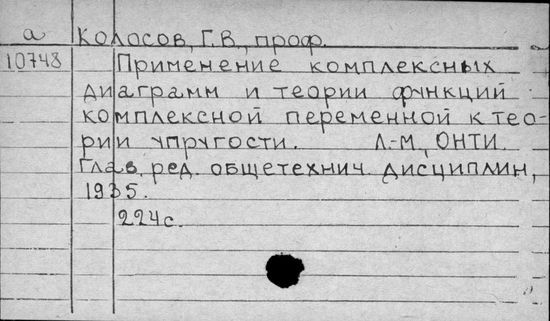 а Колосов, Г.В., проф.
10748 Применение комплексных
диаграмм и теории функций
комплексной переменной к тео-
рии упругости. Л.-М., ОНТИ.
Глав. ред. общетехнич. дисциплин,
1935.
224с.